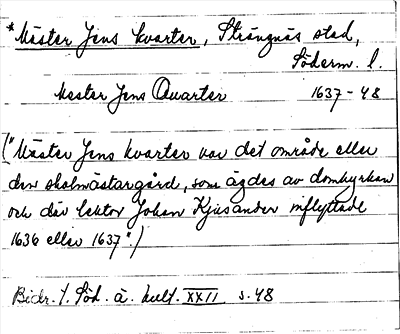 *Mäster Jens kvarter, Strängnäs stad,
Söderm. l.
Mester Jens Quarter 1637-48
("Mäster Jens kvarter var det område eller
den skolmästargård, som ägdes av domkyrkan
och där lektor Johan Kjusander inflyttade
1636 eller 1637")
Bidr. t. Söd. ä. kult. XXII s. 48